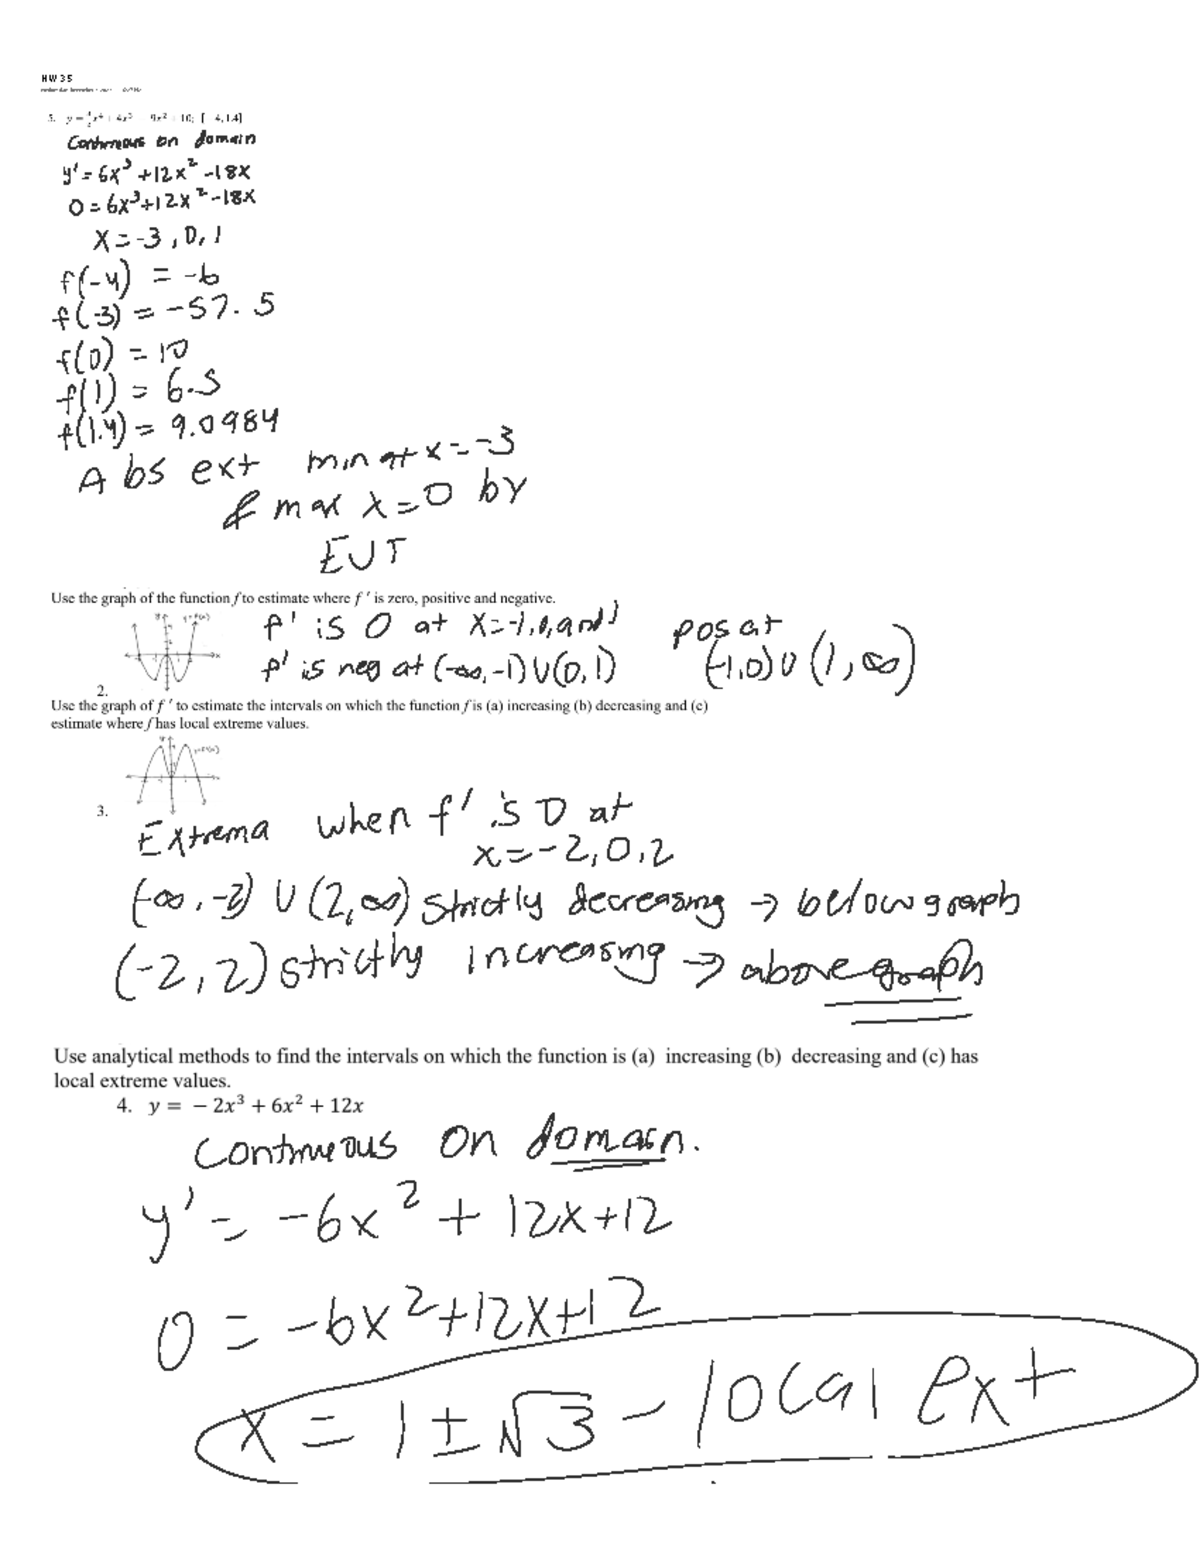 HW 35
Continuous on domain
y' = 6x³ + 12x² - 18x
0 = 6x³ + 12x² - 18x
x = -3, 0, 1
f(-4) = -6
f(-3) = -57.5
f(0) = 10
f(1) = 6.5
f(1.4) = 9.0984
Abs ext min at x = -3
& max x = 0 by
EVT
Use the graph of the function f to estimate where f ′ is zero, positive and negative.
f' is 0 at x = -1, 0, and 1
pos at
f' is neg at (-∞, -1) ∪ (0, 1)
(-1, 0) ∪ (1, ∞)
2.
Use the graph of f ′ to estimate the intervals on which the function f is (a) increasing (b) decreasing and (c)
estimate where f has local extreme values.
3.
Extrema when f' is 0 at
x = -2, 0, 2
(-∞, -2) ∪ (2, ∞) strictly decreasing → below graph
(-2, 2) strictly increasing → above graph
Use analytical methods to find the intervals on which the function is (a) increasing (b) decreasing and (c) has
local extreme values.
4. y = − 2x³ + 6x² + 12x
Continuous on domain.
y' = -6x² + 12x + 12
0 = -6x² + 12x + 12
x = 1 ± √3 - local ext